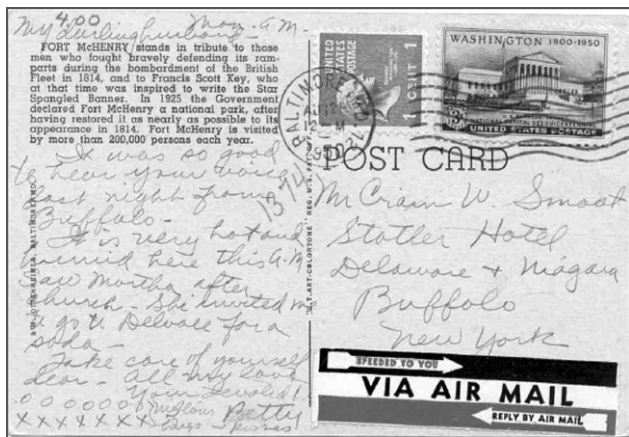 4.00
Mon. A.M.
My Darling husband -
FORT McHENRY stands in tribute to those
men who fought bravely defending its ram-
parts during the bombardment of the British
Fleet in 1814, and to Francis Scott Key, who
at that time was inspired to write the Star
Spangled Banner. In 1925 the Government
declared Fort McHenry a national park, after
having restored it as nearly as possible to its
appearance in 1814. Fort McHenry is visited
by more than 200,000 persons each year.
It was so good
to hear your voice
last night from
Buffalo -
It is very hot and
humid here this A.M.
Saw Martha after
church - She invited me
to go to for a
soda -
Take care of yourself
dear - All my love
Your Devoted
Betty
o o o o o o o millions
x x x x x x x hugs kisses
1374
UNITED STATES POSTAGE
1 CENT 1
BALTIMORE, MD.
1950
WASHINGTON 1800-1950
NATIONAL CAPITAL SESQUICENTENNIAL
3¢
UNITED STATES POSTAGE
POST CARD
Mr Crain W. Smoot
Statler Hotel
Delaware + Niagara
Buffalo
New York
SPEEDED TO YOU
VIA AIR MAIL
REPLY BY AIR MAIL